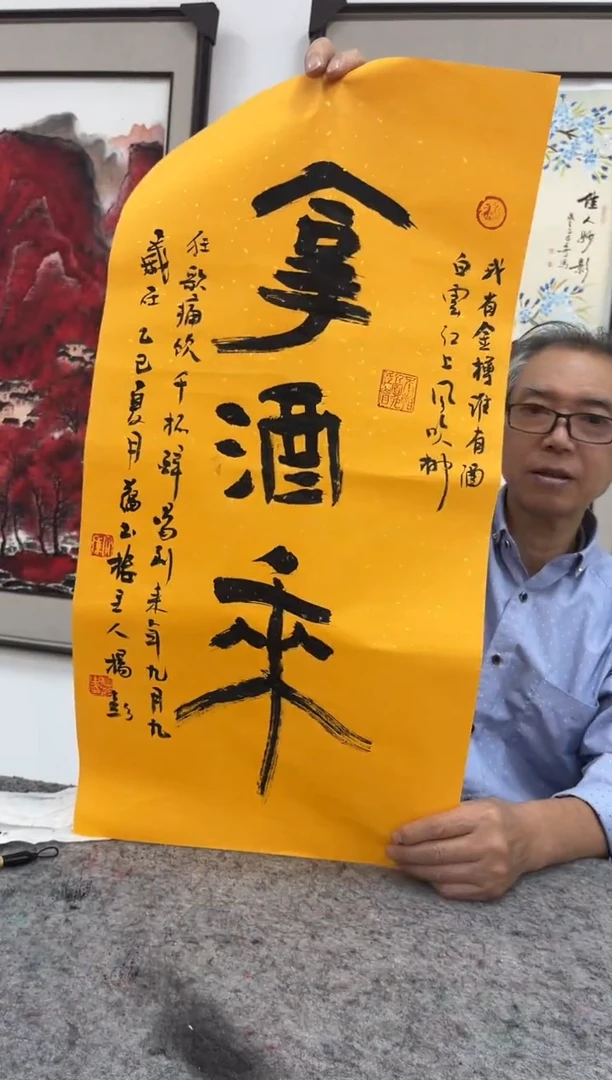 我有金樽谁有酒
白雲江上风吹柳
拿
酒
来
狂歌痛饮千杯醉喝到来年九月九
歲在乙巳夏月 主人楊
佳人 影